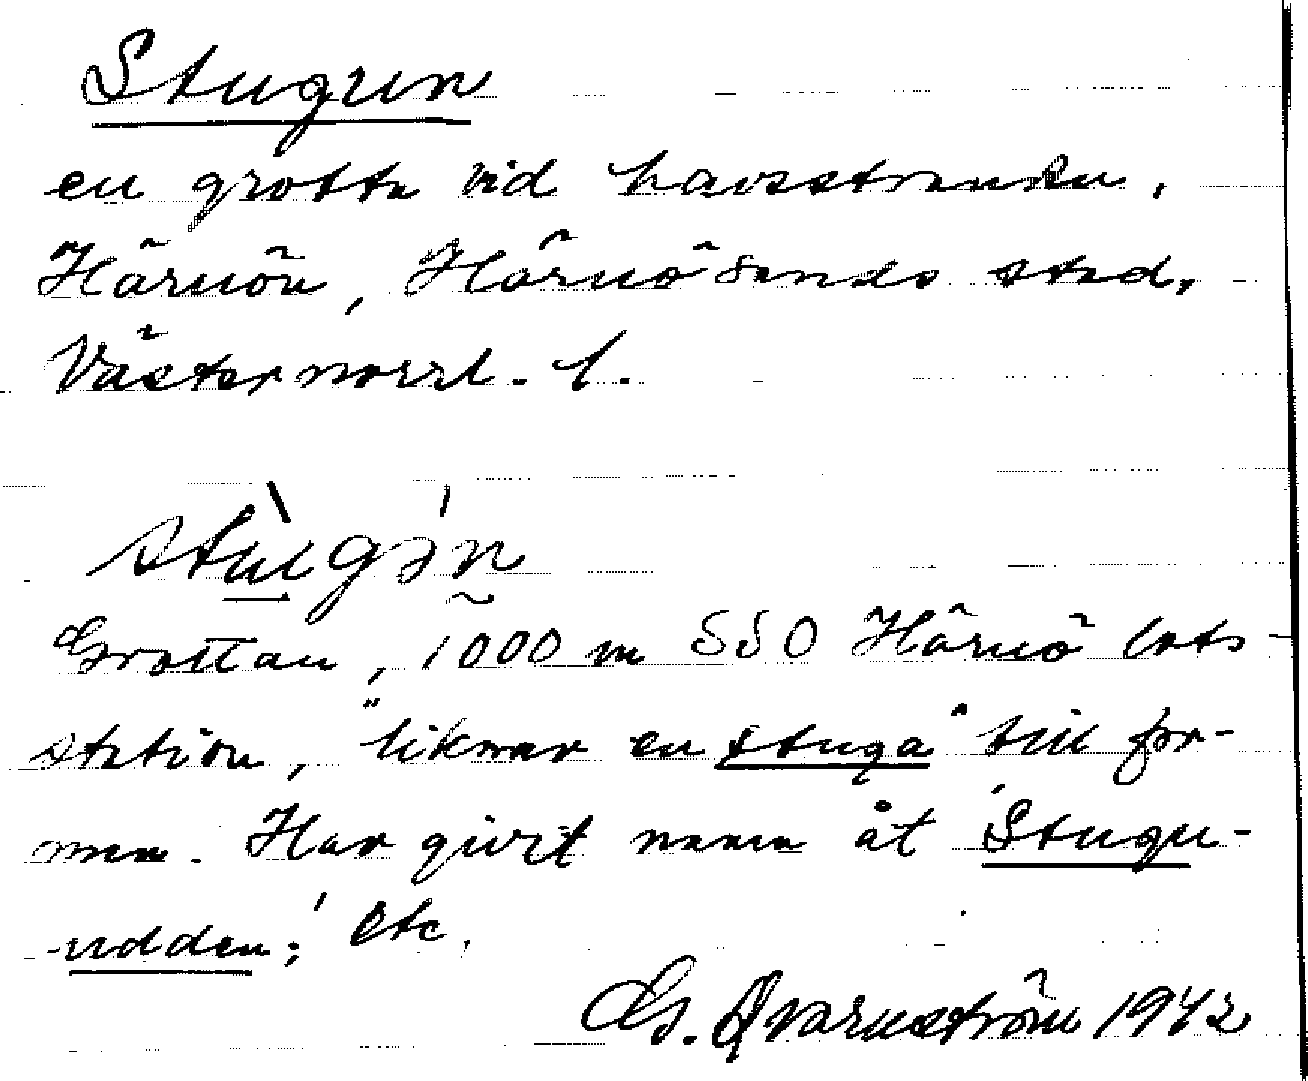 Stugun
en grotta vid havsstranden,
Härnön, Härnösands stad,
Västernorrl. l.
stùgə́n
Grottan, 1000 m SSO Härnö lots-
station, "liknar en stuga" till for-
men. Har givit namn åt 'Stugu-
udden', etc.
G. Qvarnström 1942